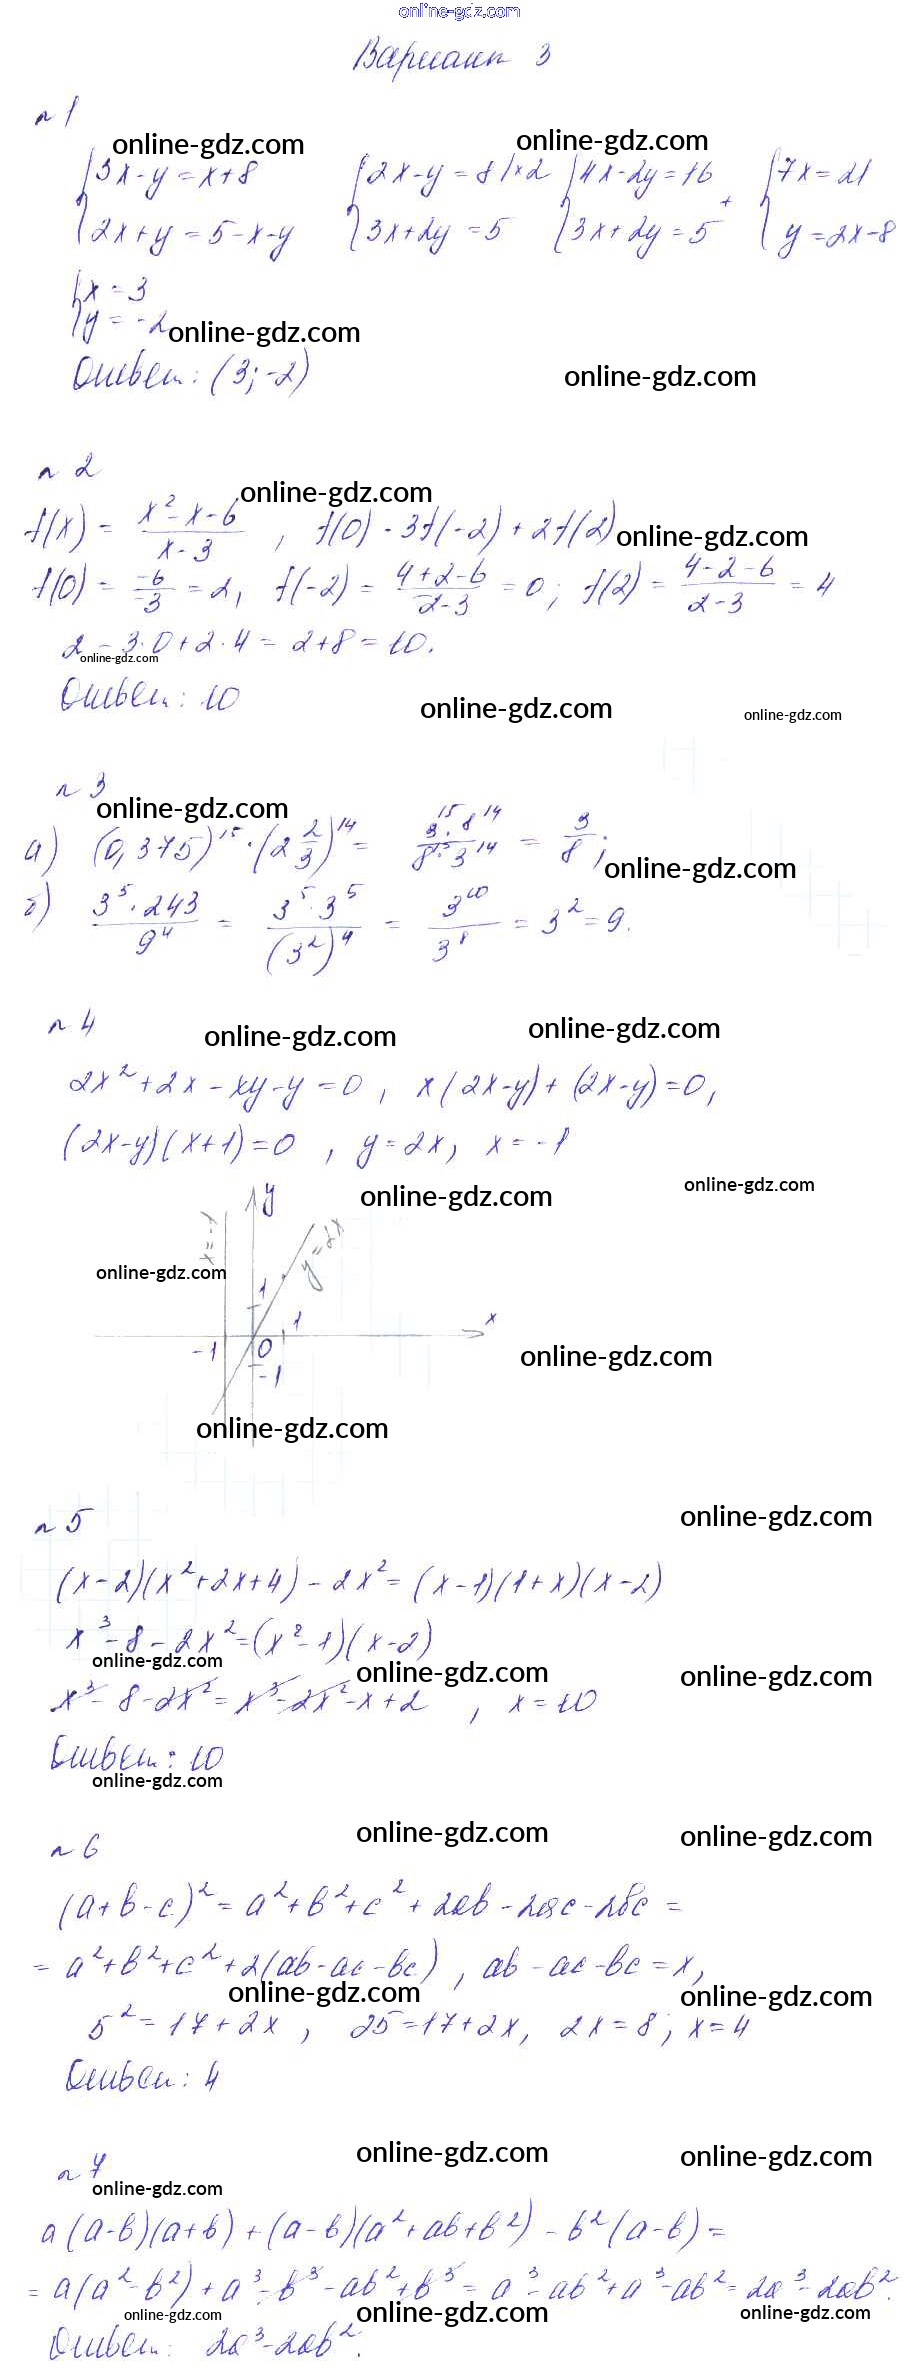 online-gdz.com
Вариант 3
n 1
online-gdz.com online-gdz.com
{3x-y=x+8 {2x-y=8 |×2 {4x-2y=16 + {7x=21
{2x+y=5-x-y {3x+2y=5 {3x+2y=5 {y=2x-8
{x=3
{y=-2
online-gdz.com
Ответ: (3;-2)
online-gdz.com
n 2
online-gdz.com
f(x) = (x²-x-6)/(x-3), f(0)-3f(-2)+2f(2)
online-gdz.com
f(0) = -6/-3 = 2, f(-2) = (4+2-6)/(-2-3) = 0; f(2) = (4-2-6)/(2-3) = 4
2-3·0+2·4=2+8=10.
online-gdz.com
Ответ: 10
online-gdz.com online-gdz.com
n 3
online-gdz.com
а) (0,375)¹⁵·(2 2/3)¹⁴ = (3¹⁵·8¹⁴)/(8¹⁵·3¹⁴) = 3/8;
online-gdz.com
б) (3⁵·243)/9⁴ = (3⁵·3⁵)/(3²)⁴ = 3¹⁰/3⁸ = 3² = 9.
n 4
online-gdz.com online-gdz.com
2x²+2x-xy-y=0, x(2x-y)+(2x-y)=0,
(2x-y)(x+1)=0, y=2x, x=-1
online-gdz.com online-gdz.com
y
x=-1
y=2x
online-gdz.com
1
1
x
-1
0
-1
online-gdz.com
online-gdz.com
n 5
online-gdz.com
(x-2)(x²+2x+4)-2x²=(x-1)(1+x)(x-2)
x³-8-2x²=(x²-1)(x-2)
online-gdz.com online-gdz.com online-gdz.com
x³-8-2x²=x³-2x²-x+2, x=10
Ответ: 10
online-gdz.com
online-gdz.com online-gdz.com
n 6
(a+b-c)²=a²+b²+c²+2ab-2ac-2bc=
=a²+b²+c²+2(ab-ac-bc), ab-ac-bc=x,
online-gdz.com online-gdz.com
5²=17+2x, 25=17+2x, 2x=8; x=4
Ответ: 4
online-gdz.com online-gdz.com
n 7
online-gdz.com
a(a-b)(a+b)+(a-b)(a²+ab+b²)-b²(a-b)=
=a(a²-b²)+a³-b³-ab²+b³=a³-ab²+a³-ab²=2a³-2ab².
online-gdz.com online-gdz.com online-gdz.com
Ответ: 2a³-2ab².